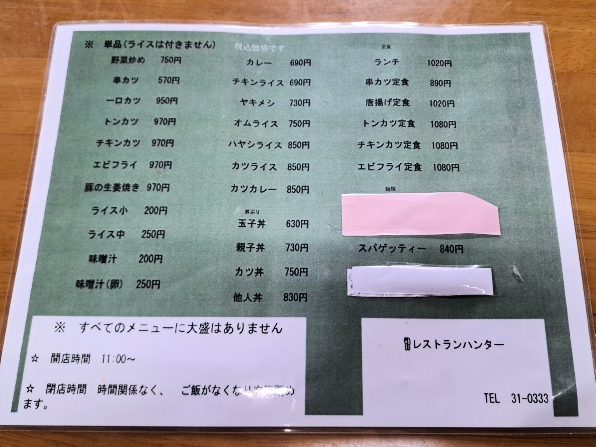 ※ 単品(ライスは付きません)
野菜炒め 750円
串カツ 570円
一口カツ 950円
トンカツ 970円
チキンカツ 970円
エビフライ 970円
豚の生姜焼き 970円
ライス小 200円
ライス中 250円
味噌汁 200円
味噌汁(卵) 250円
税込価格です
カレー 690円
チキンライス 690円
ヤキメシ 730円
オムライス 750円
ハヤシライス 850円
カツライス 850円
カツカレー 850円
丼ぶり
玉子丼 630円
親子丼 730円
カツ丼 750円
他人丼 830円
定食
ランチ 1020円
串カツ定食 890円
唐揚げ定食 1020円
トンカツ定食 1080円
チキンカツ定食 1080円
エビフライ定食 1080円
麺類
スパゲッティー 840円
※ すべてのメニューに大盛はありません
☆ 開店時間 11:00～
☆ 閉店時間 時間関係なく、 ご飯がなくなり次第閉め
ます。
レストランハンター
TEL 31-0333